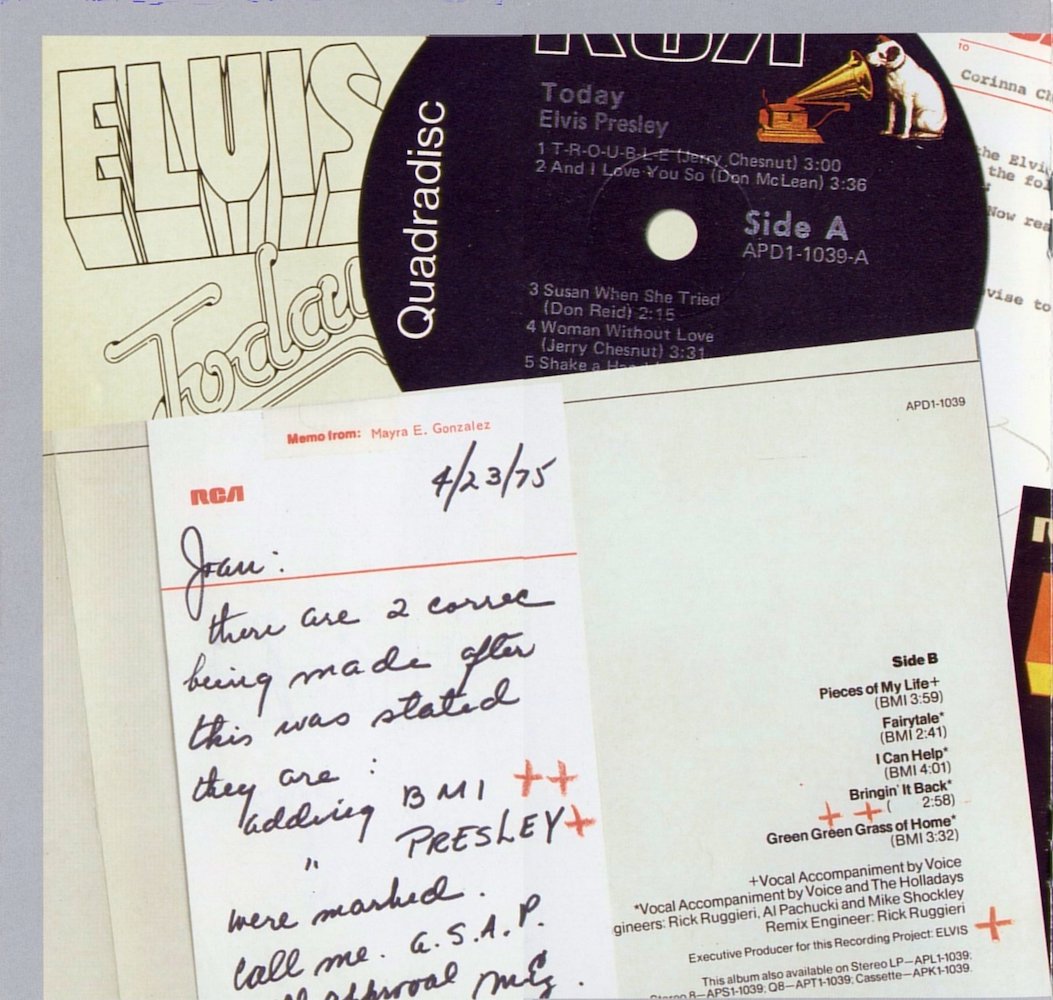 ELVIS
Today
Quadradisc
RCA
Today
Elvis Presley
1 T-R-O-U-B-L-E (Jerry Chesnut) 3:00
2 And I Love You So (Don McLean) 3:36
Side A
APD1-1039-A
3 Susan When She Tried
(Don Reid) 2:15
4 Woman Without Love
(Jerry Chesnut) 3:31
5 Shake a
TO
Corinna
the
the
Now
to
APD1-1039
Memo from: Mayra E. Gonzalez
4/23/75
RCA
Joan:
there are 2 correc
being made after
this was stated
they are :
adding BMI ++
" PRESLEY+
were marked.
Call me. A.S.A.P.
approval
Side B
Pieces of My Life+
(BMI 3:59)
Fairytale*
(BMI 2:41)
I Can Help*
(BMI 4:01)
Bringin' It Back*
++ ( 2:58)
Green Green Grass of Home*
(BMI 3:32)
+Vocal Accompaniment by Voice
*Vocal Accompaniment by Voice and The Holladays
gineers: Rick Ruggieri, Al Pachucki and Mike Shockley
Remix Engineer: Rick Ruggieri
Executive Producer for this Recording Project: ELVIS +
This album also available on Stereo LP—APL1-1039;
Stereo 8—APS1-1039; Q8—APT1-1039; Cassette—APK1-1039.